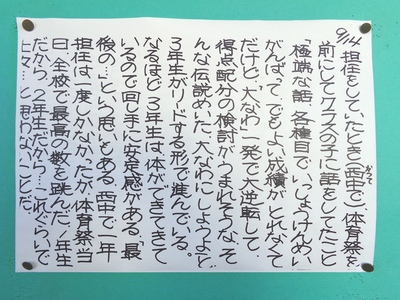 9/14 担任をしていたとき(西中で)体育祭を
かつて
前にしてクラスの子に話をしたこと
「極端な話、各種目でいっしょうけんめい
がんばって、でもよい成績がとれなくて
だけど、“大なわ”一発で大逆転して、
得点配分の検討がうまれそうな、そ
んな伝説めいた、大なわにしようよ」と
3年生がリードする形で進んでいる。
なるほど3年生は体ができてきて
いるので回し手に安定感がある。「最
後の…」という思いもある。西中で一年
担任は一度しかなかったが体育祭当
日、全校で最高の数を跳んだ。1年生
だから、2年生だから…これぐらいで
上々…と思わないことだ。